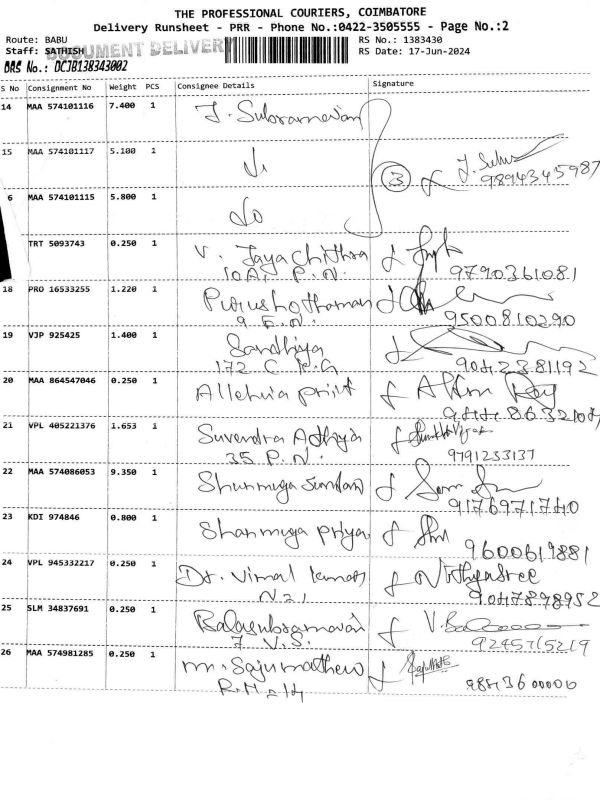 THE PROFESSIONAL COURIERS, COIMBATORE
Delivery Runsheet - PRR - Phone No.:0422-3505555 - Page No.:2
Route: BABU
RS No.: 1383430
Staff: SATHISH
DOCUMENT DELIVERY
RS Date: 17-Jun-2024
DRS No.: DCJB138343002
S No Consignment No Weight PCS Consignee Details Signature
14 MAA 574101116 7.400 1 J. Subramaniam
15 MAA 574101117 5.100 1 3 J. Subra
9894345987
6 MAA 574101115 5.800 1
TRT 5093743 0.250 1 V. Jayachithra
10A, P.N. 9790361081
18 PRO 16533255 1.220 1 Purushothaman
9 E.N. 9500810290
19 VJP 925425 1.400 1 Sandhiya
172 C 9042381192
20 MAA 864547046 0.250 1 Alleluia print
21 VPL 405221376 1.653 1 Suvendra Adhya
35 P.N. 9791233137
22 MAA 574086053 9.350 1 Shunmuga Sundaram
9176971740
23 KDI 974846 0.800 1 Shanmuga priya
9600619881
24 VPL 945332217 0.250 1 Dr. Vimal Kumar Nithyasree
9047898952
25 SLM 34837691 0.250 1 Balasubramanian V. Bala
7 V.S. 9245715219
26 MAA 574981285 0.250 1 Mr. Saju mathew
9843600000